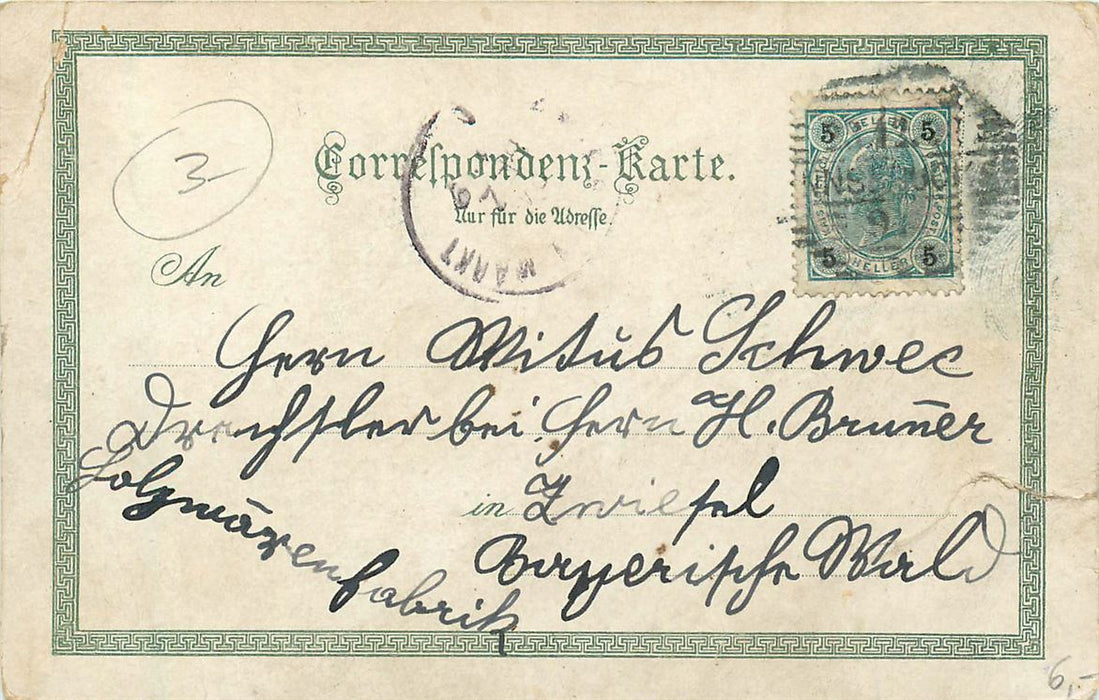 3-
Correspondenz-Karte.
Nur für die Adresse
MARKT
5 HELLER 5
5 HELLER 5
An
Herrn Witus Schwec
Drechsler bei Herrn H. Brunner
in Zwiesel
Holzwaren fabrik
Bayerische Wald
6,-